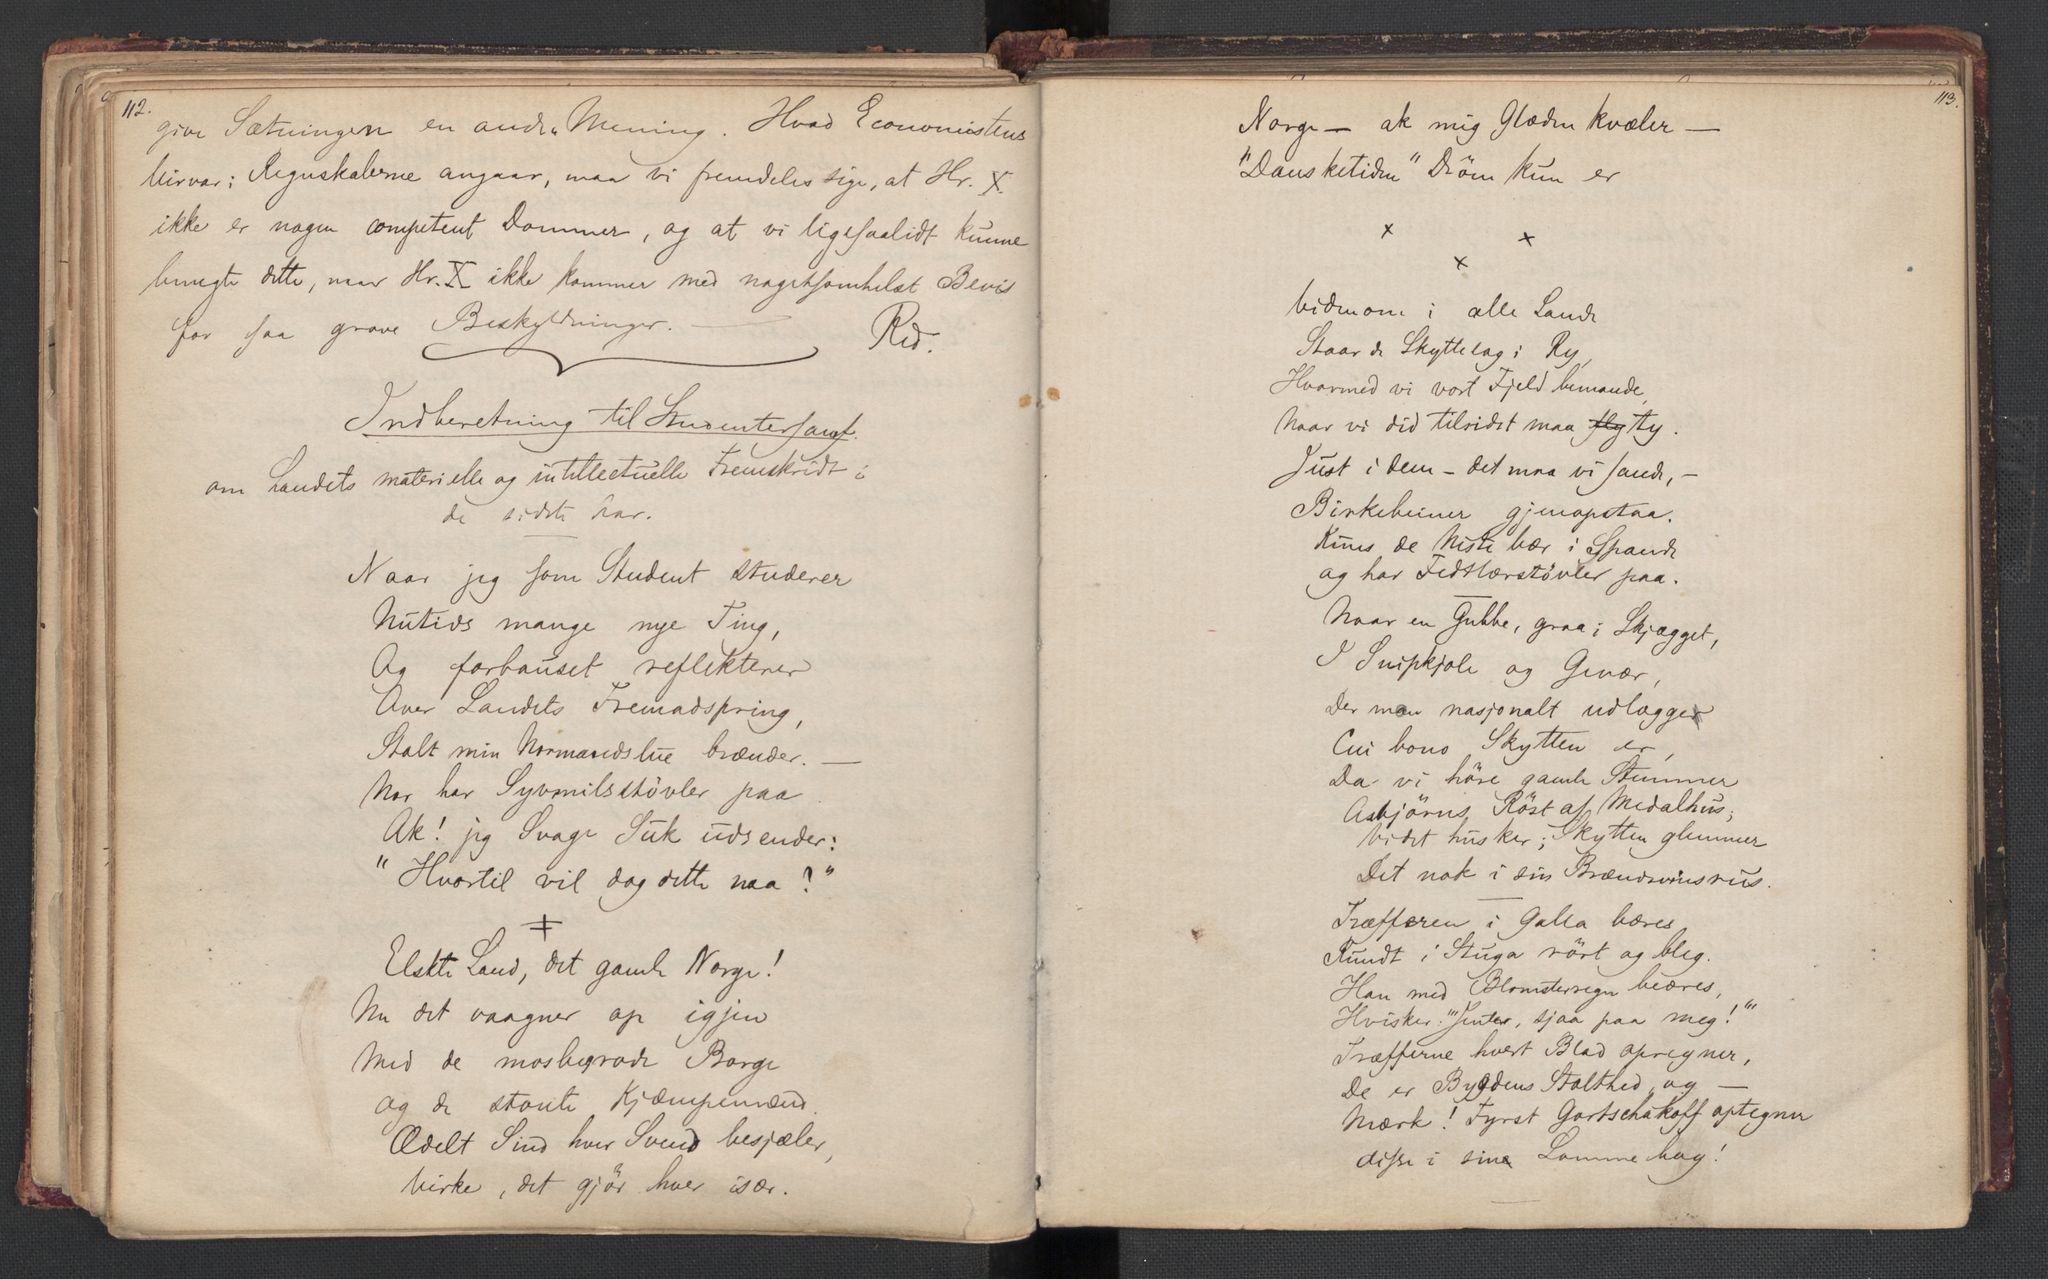 112.
give Sætningen en anden Mening. Hvad Economistens
Virvar i Regnskaberne angaar, maa vi fremdeles sige, at Hr. X.
ikke er nogen competent Dommer, og at vi ligesaalidt kunne
benegte dette, naar Hr. X ikke kommer med nogetsomhelst Bevis
for saa grove Beskyldninger. —
Red.
Indberetning til Studentersamf.
om Landets materielle og intellectuelle Fremskridt i
de sidste Aar.
Naar jeg som Student studerer
Nutids mange nye Ting,
Og forbauset reflekterer
Over Landets Fremadspring,
Stolt min Normandslue brænder. —
Nor har Syvmilsstövler paa
Ak! jeg Svage Suk udsender:
"Hvortil vil dog dette naa?"
Elskte Land, det gamle Norge!
Nu det vaagner op igjen
Med de mosbegrode Borge
og de stoute Kjæmpemænd.
Ædelt Sind hver Svend besjæler,
Virke, det gjör hver især.
113.
Norge — ak mig Glæden kvæler —
"Dansketiden" Dröm kun er
x x
x
Videnom i alle Lande
Staar de Skyttelag i Ry,
Hvormed vi vort Fjeld bemande,
Naar vi did tilsidst maa fly ty.
Just i dem – det maa vi sande, –
Birkebeiner gjenopstaa.
Kuns de Niste bær i Spande
og har Fedtlærstövler paa.
Naar en Gubbe, graa i Skjægget,
I Snipkjole og Gevær,
Der man nasjonalt udlægger
Cui bono Skytten er,
Da vi höre gamle Stemmer
Asbjörns Röst af Medalhus;
Vi det husker; Skytten glemmer
Det nok i sin Brændevinsrus.
Træfferen i Galla bæres
Rundt i Stuga rört og bleg.
Han med Blomsterregn beæres,
Hvisker: "Jenter, sjaa paa meg!"
Træfferne hvert Blad opregner,
De er Bygdens Stolthed, og —
Mærk! Fyrst Gortschakoff optegner
disse i sine Lommebog!